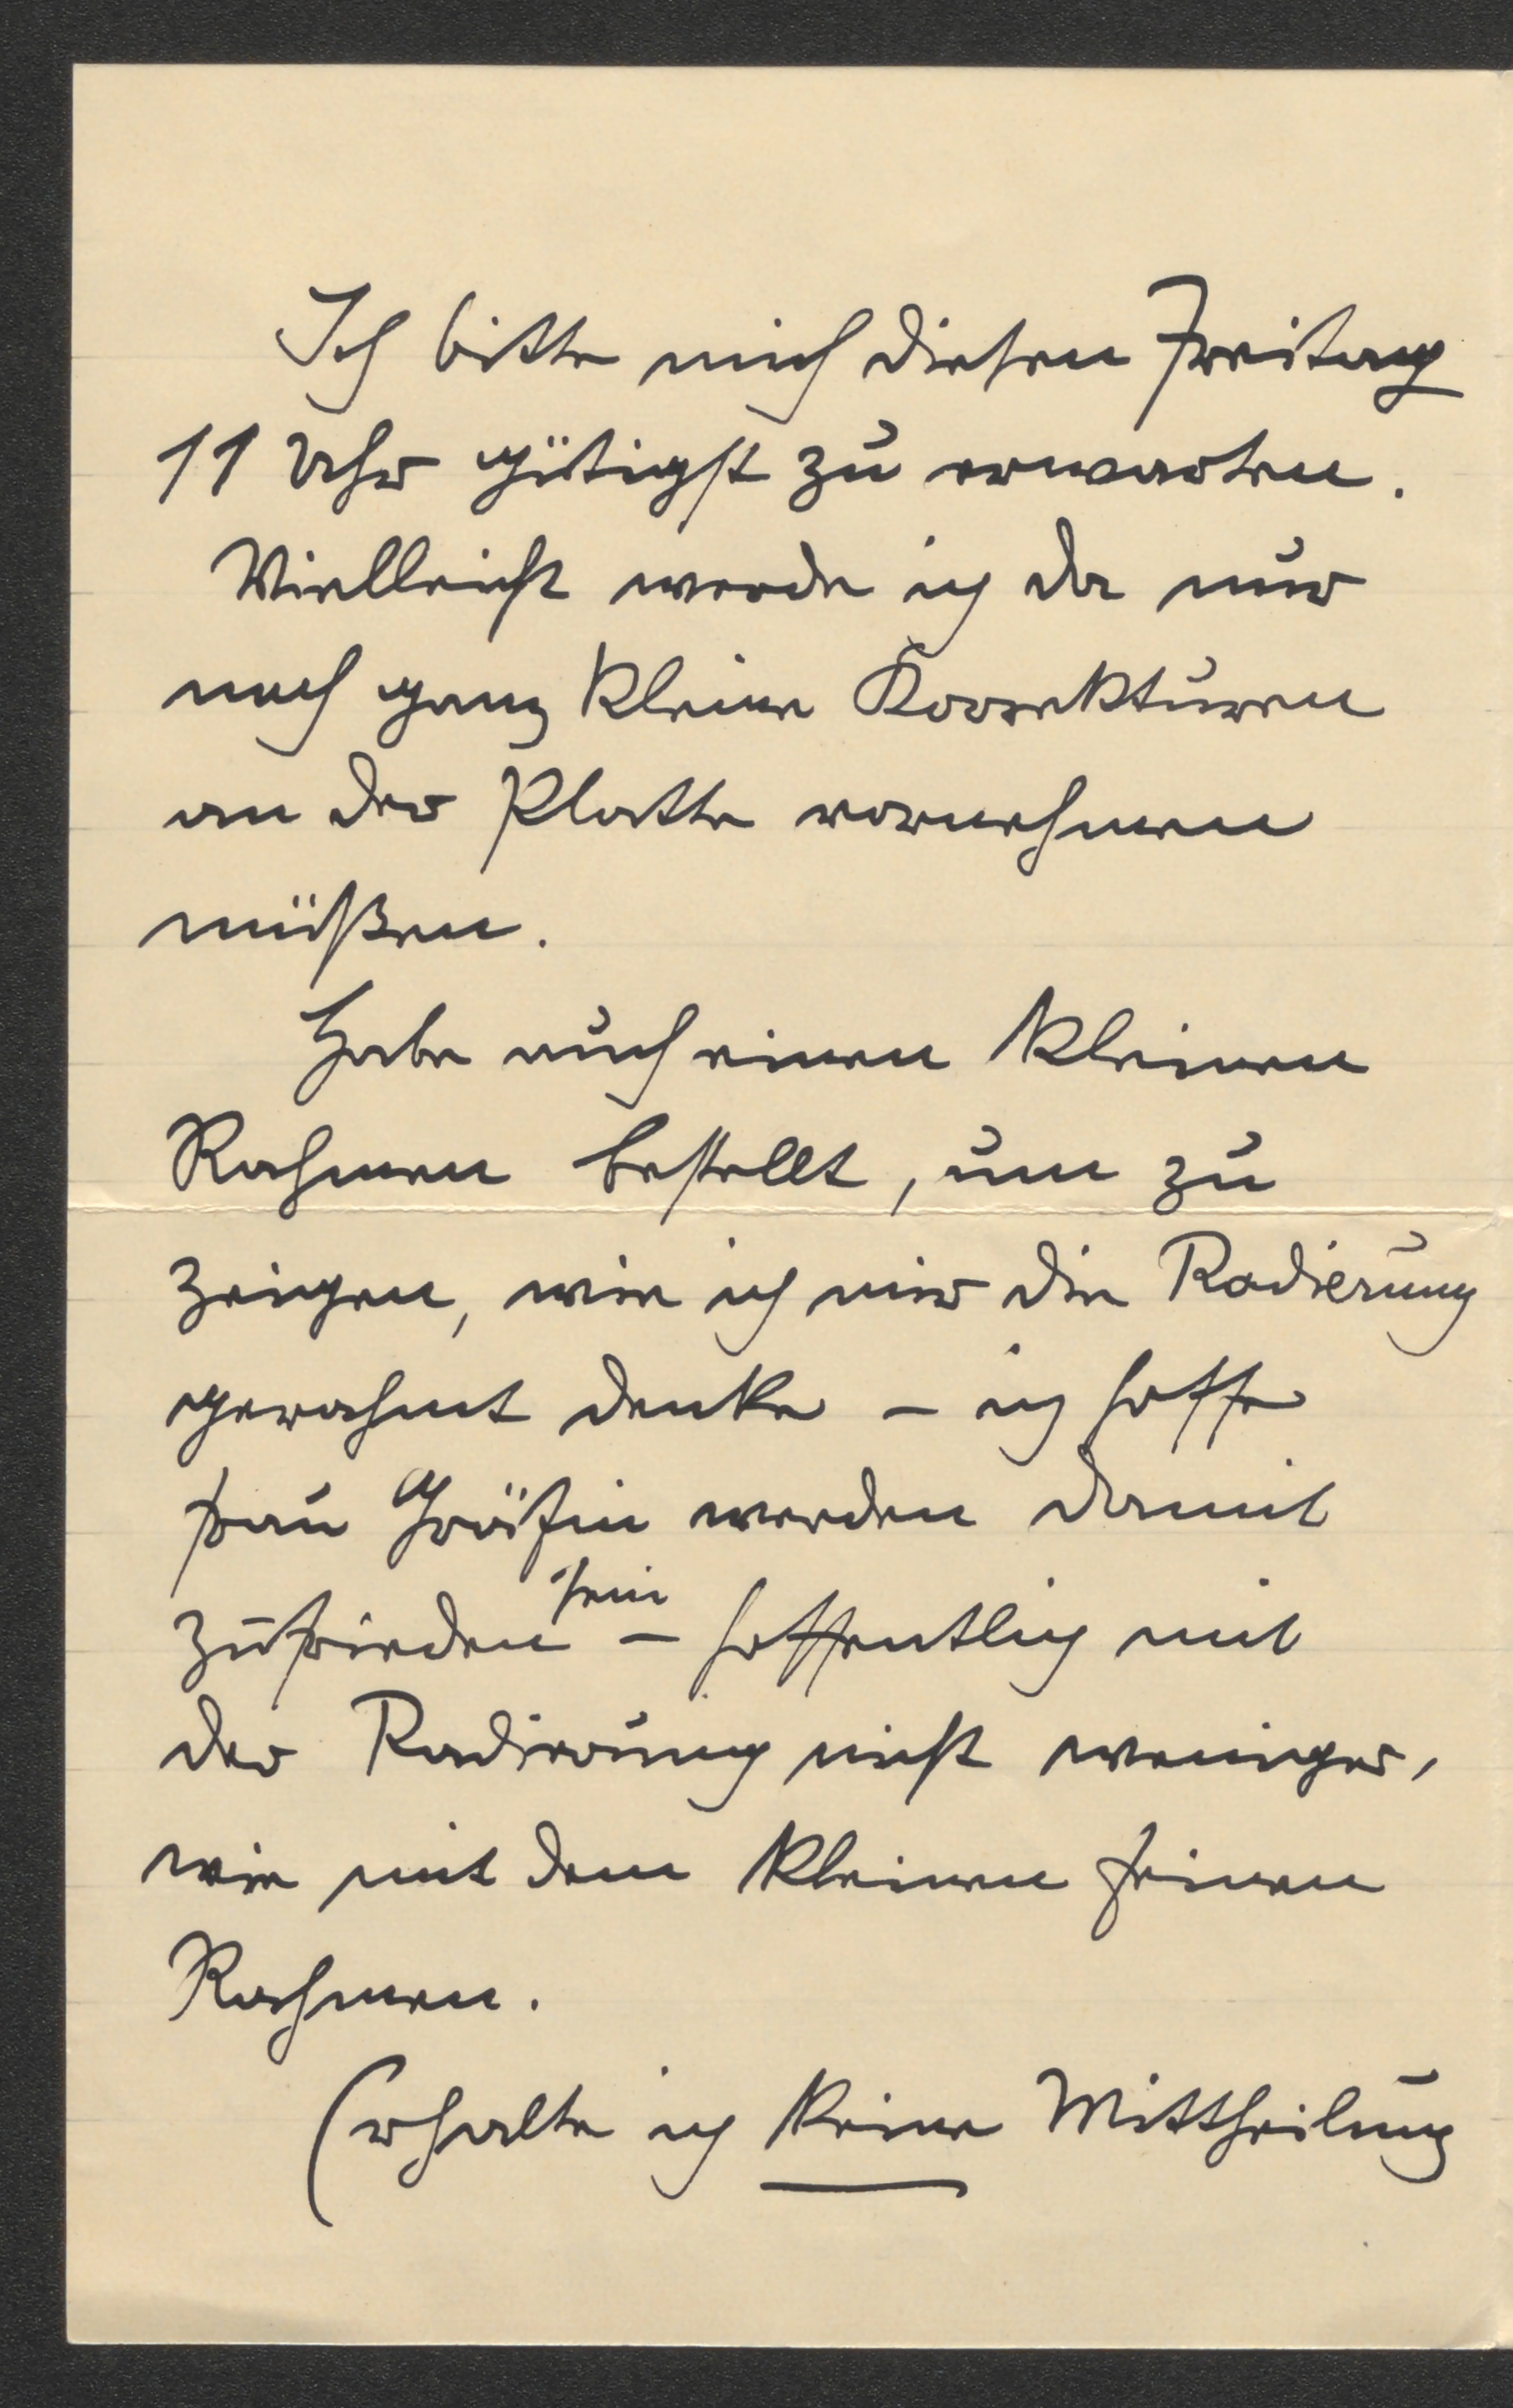 Ich bitte mich diesen Freitag
11 Uhr gütigst zu erwarten.
Vielleicht werde ich da nur
noch ganz kleine Korrekturen
an der Platte vornehmen
müßen.
Habe auch einen kleinen
Rahmen bestellt, um zu
zeigen, wie ich mir die Radierung
gerahmt denke – ich hoffe
Frau Gräfin werden damit
zufrieden sein – hoffentlich mit
der Radierung nicht weniger,
wie mit dem kleinen feinen
Rahmen.
(Erhalte ich keine Mittheilung